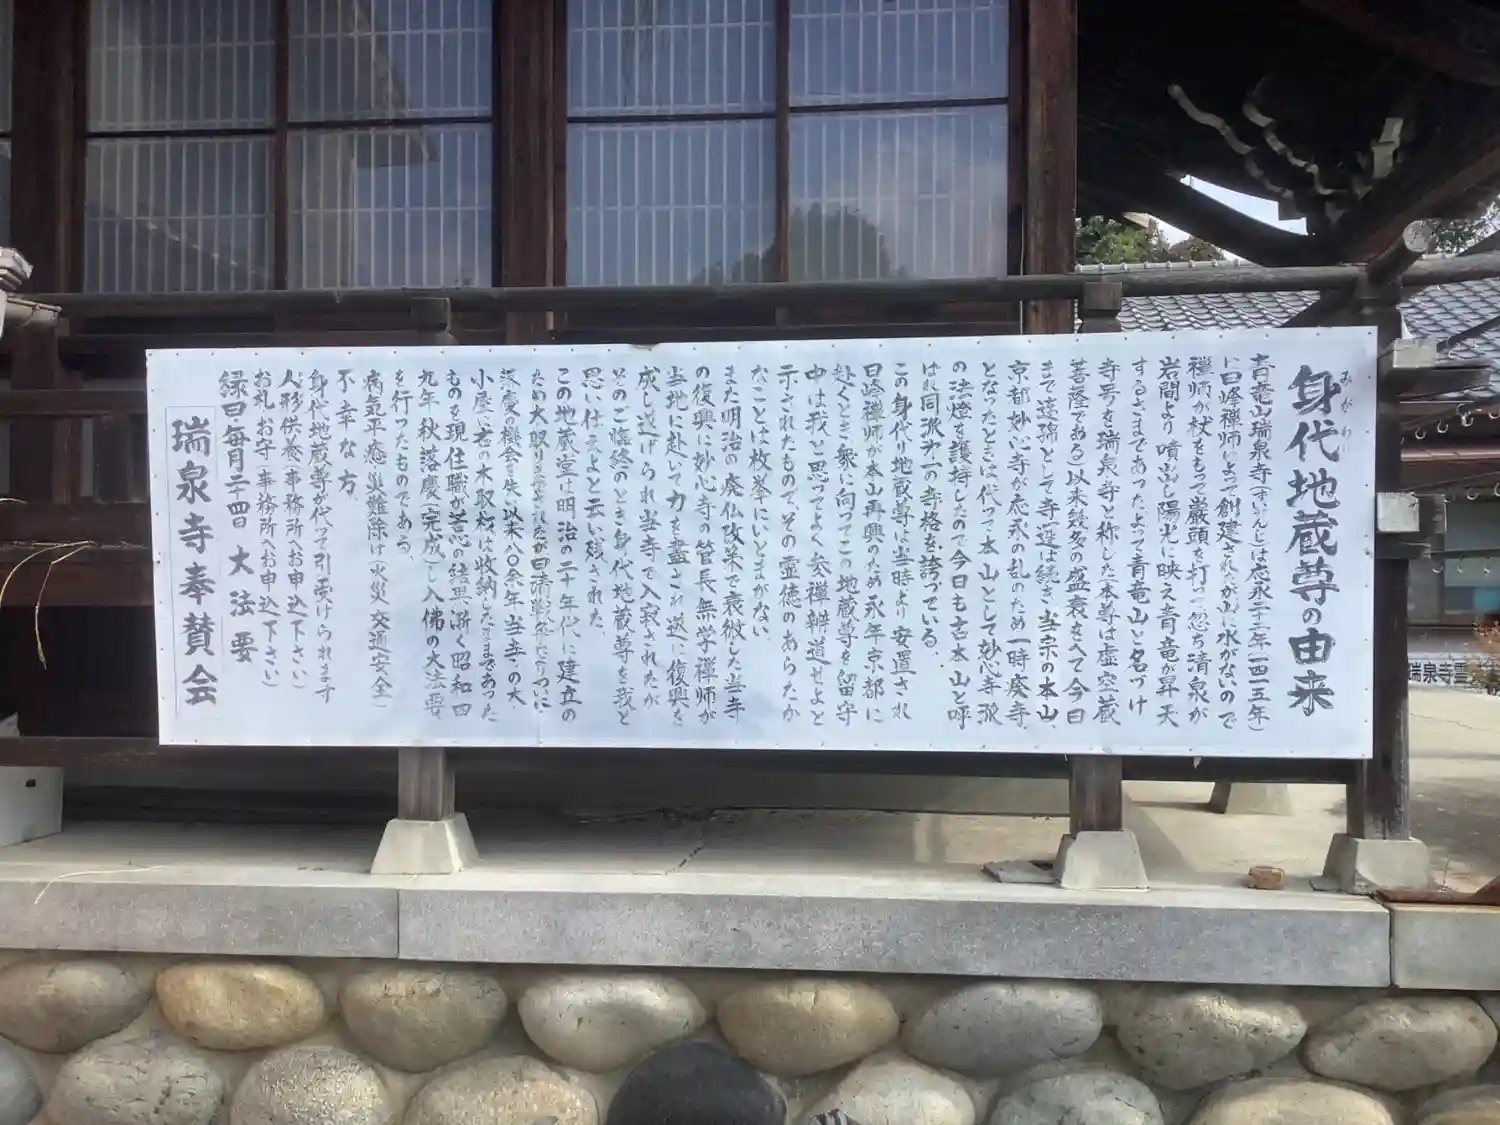 身代地蔵尊の由来
みがわり
青竜山瑞泉寺(ずいせんじ)は応永二十二年(一四一五年)
に日峰禅師によって創建されたが山に水がないので
禅師が杖をもって巌頭を打つと忽ち清泉が
岩間より噴出し陽光に映え青竜が昇天
するさまであったよって青竜山と名づけ
寺号を瑞泉寺と称した(本尊は虚空蔵
菩薩である)以来幾多の盛衰をへて今日
まで連綿として寺運は続き、当宗の本山、
京都妙心寺が応永の乱のため一時廃寺、
となったときは代って本山として妙心寺派
の法燈を護持したので今日も古本山と呼
ばれ同派第一の寺格を誇っている。
この身代り地蔵尊は当時より安置され
日峰禅師が本山再興のため永年京都に
赴くとき衆に向ってこの地蔵尊を留守
中は我と思ってよく参禅辨道せよと
示されたもので、その霊徳のあらたか
なことは枚挙にいとまがない。
また明治の廃仏政策で衰微した当寺
の復興に妙心寺の管長無学禅師が
当地に赴いて力を盡され遂に復興を
成し遂げられ当寺で入寂されたが
そのご臨終のとき身代地蔵尊を我と
思い仕えよと云い残された。
この地蔵堂は明治の二十年代に建立の
ため大取り
落慶の機会を失い以来八〇余年、当寺の大
小屋に
ものを現住職が苦心の結果漸く昭和四
九年秋落慶(完成)し入佛の大法要
を行ったものである。
病気平癒 災難除け(火災 交通安全)
不幸な方。
身代地蔵尊が代って引き受けられます
人形供養(事務所へお申込下さい)
お札 お守(事務所へお申込下さい)
縁日毎月二十四日 大法要
瑞泉寺奉賛会
瑞泉寺霊